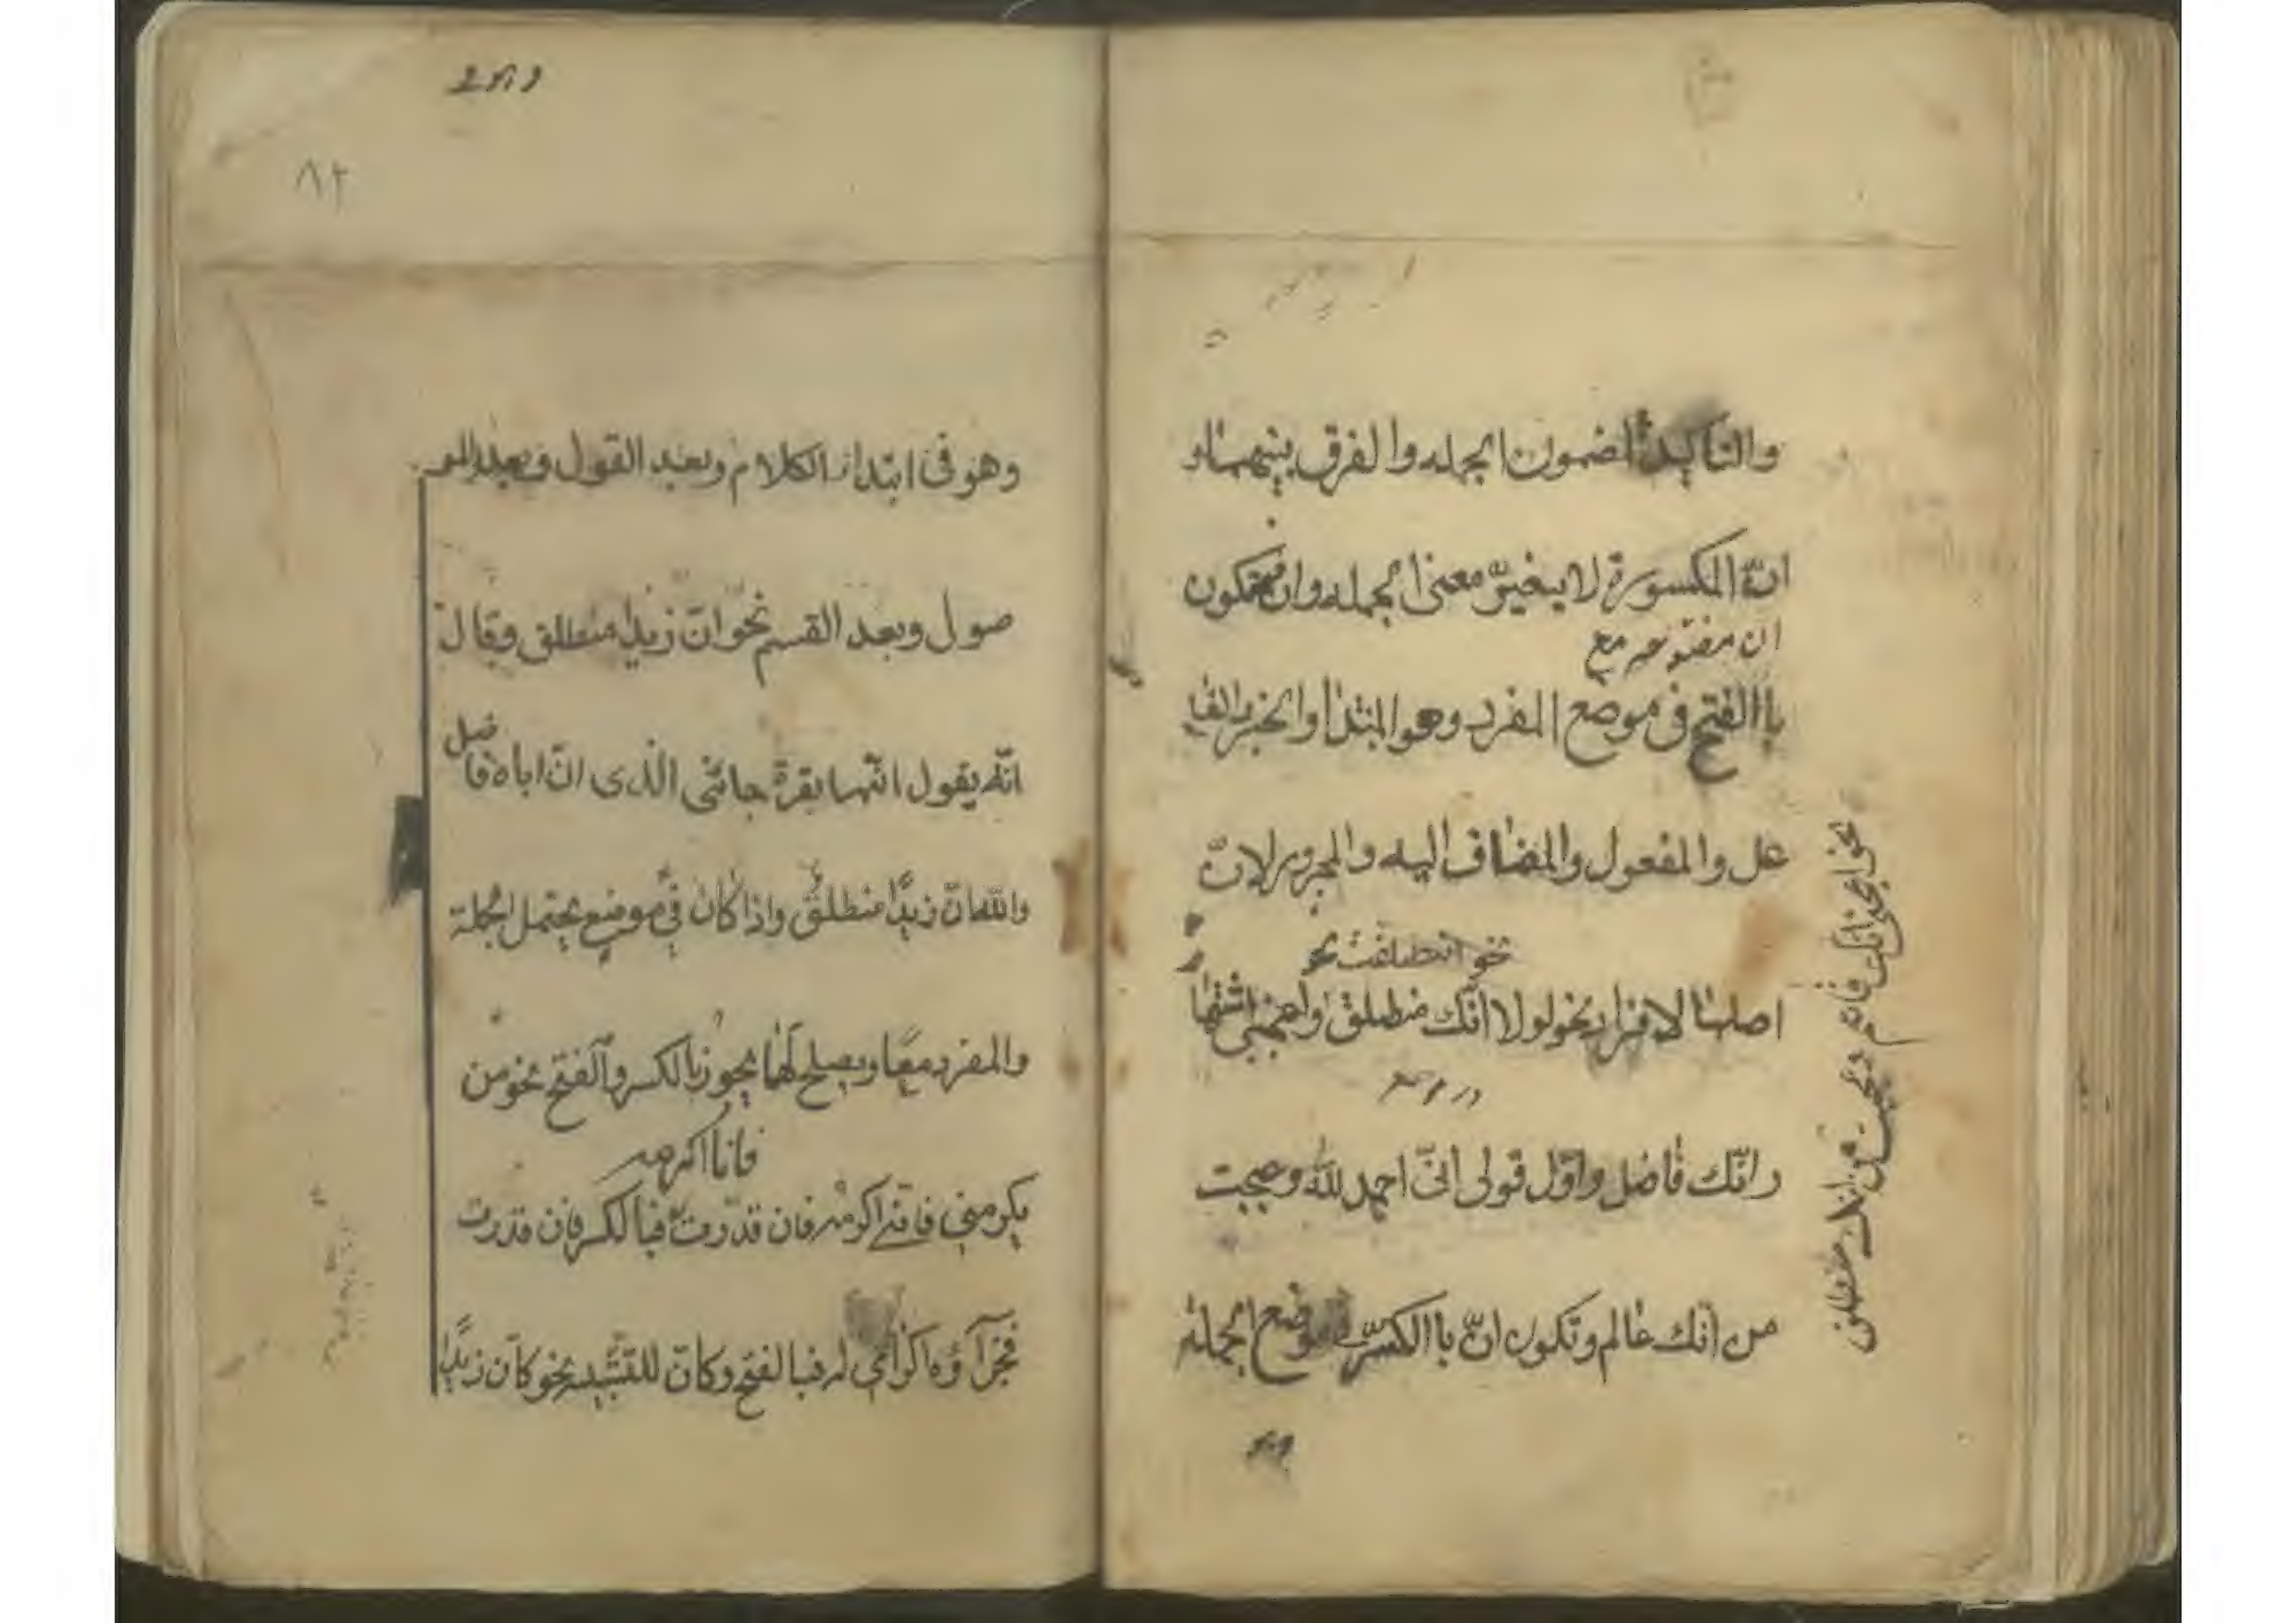 والتاكيد لمضمون الجمله والفرق بينهما و
انّ المكسورة لا يغيّر معنى الجمله وان فيكون
ان مفتوحه مع
باالفتح فى موضع المفرد وهو المبتدا والخبر والفا
عل والمفعول والمضاف اليه والمجرور لانّ
نحو انطلقت نحو
اصلها الافراد نحو لولا انّك منطلق واعجبنى اشتها
رانّك فاضل واوّل قولى انىّ احمد لله وعجبت
من انّك عالم وتكون انّ باالكسر فى موضع الجمله
نحو اعجبنى انك قائم وعجبت من انك منطلق
٨٢
وهو فى ابتداء الكلام وبعد القول وبعد المو
صول وبعد القسم نحو انّ زيدا منطلق وقال
انّه يقول انّها بقرة جائنى الّذى انّ اباه فاضل
والله انّ زيدًا منطلقٌ واذا كان فى موضع يحتمل الجملة
والمفرد معًا ويصلح لها يجوز باالكسر والفتح نحو من
فانا اكرمه
يكرمنى فانّى اكرمه فان قدّرت فبالكسر فان قدرت
فجزآؤه اكرامى له فبالفتح وكانّ للتّشبيه نحو كانّ زيدًا